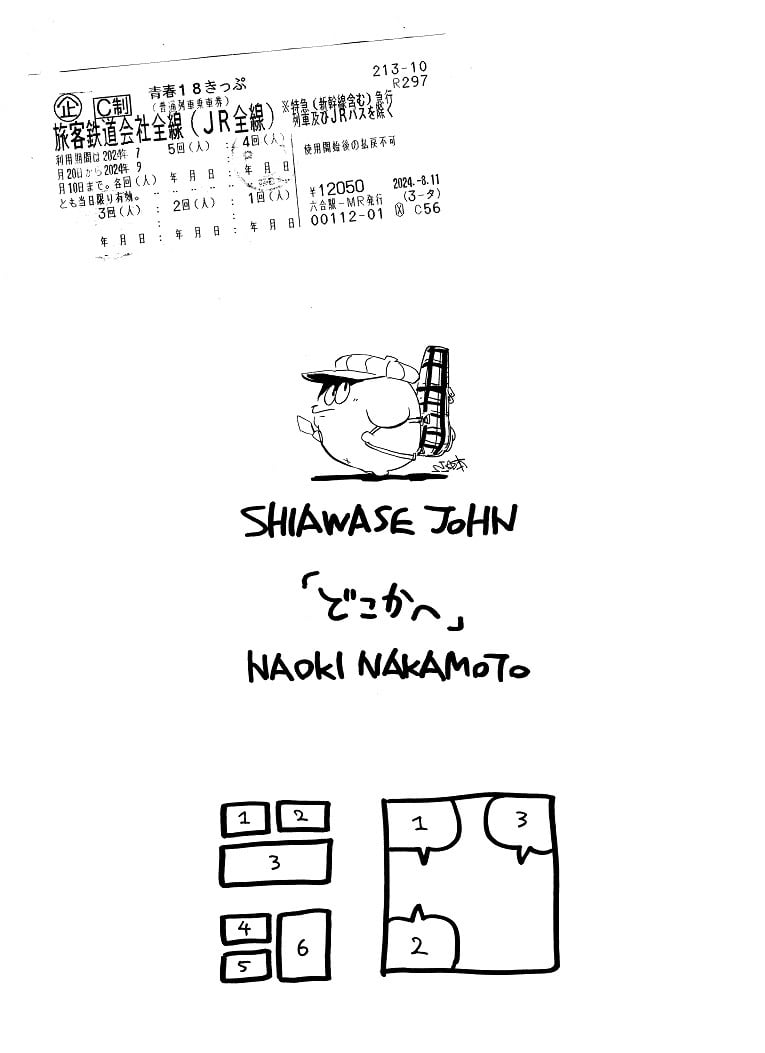 213-10
R297
企 C制 青春18きっぷ
(普通列車乗車券)
旅客鉄道会社全線(JR全線)
※特急(新幹線含む)急行
列車及びJRバスを除く
利用期間は2024年 7
月20日から2024年 9
月10日まで。各回(人)
とも当日限り有効。
5回(人) : 4回(人)
年 月 日 : 年 月 日
3回(人) : 2回(人) : 1回(人)
年 月 日 : 年 月 日 : 年 月 日
使用開始後の払戻不可
¥12050 2024.-8.11
六合駅-MR発行 (3-タ)
00112-01 C56
SHIAWASE JOHN
「どこかへ」
NAOKI NAKAMOTO
1 2
3
4
5
6
1 3
2